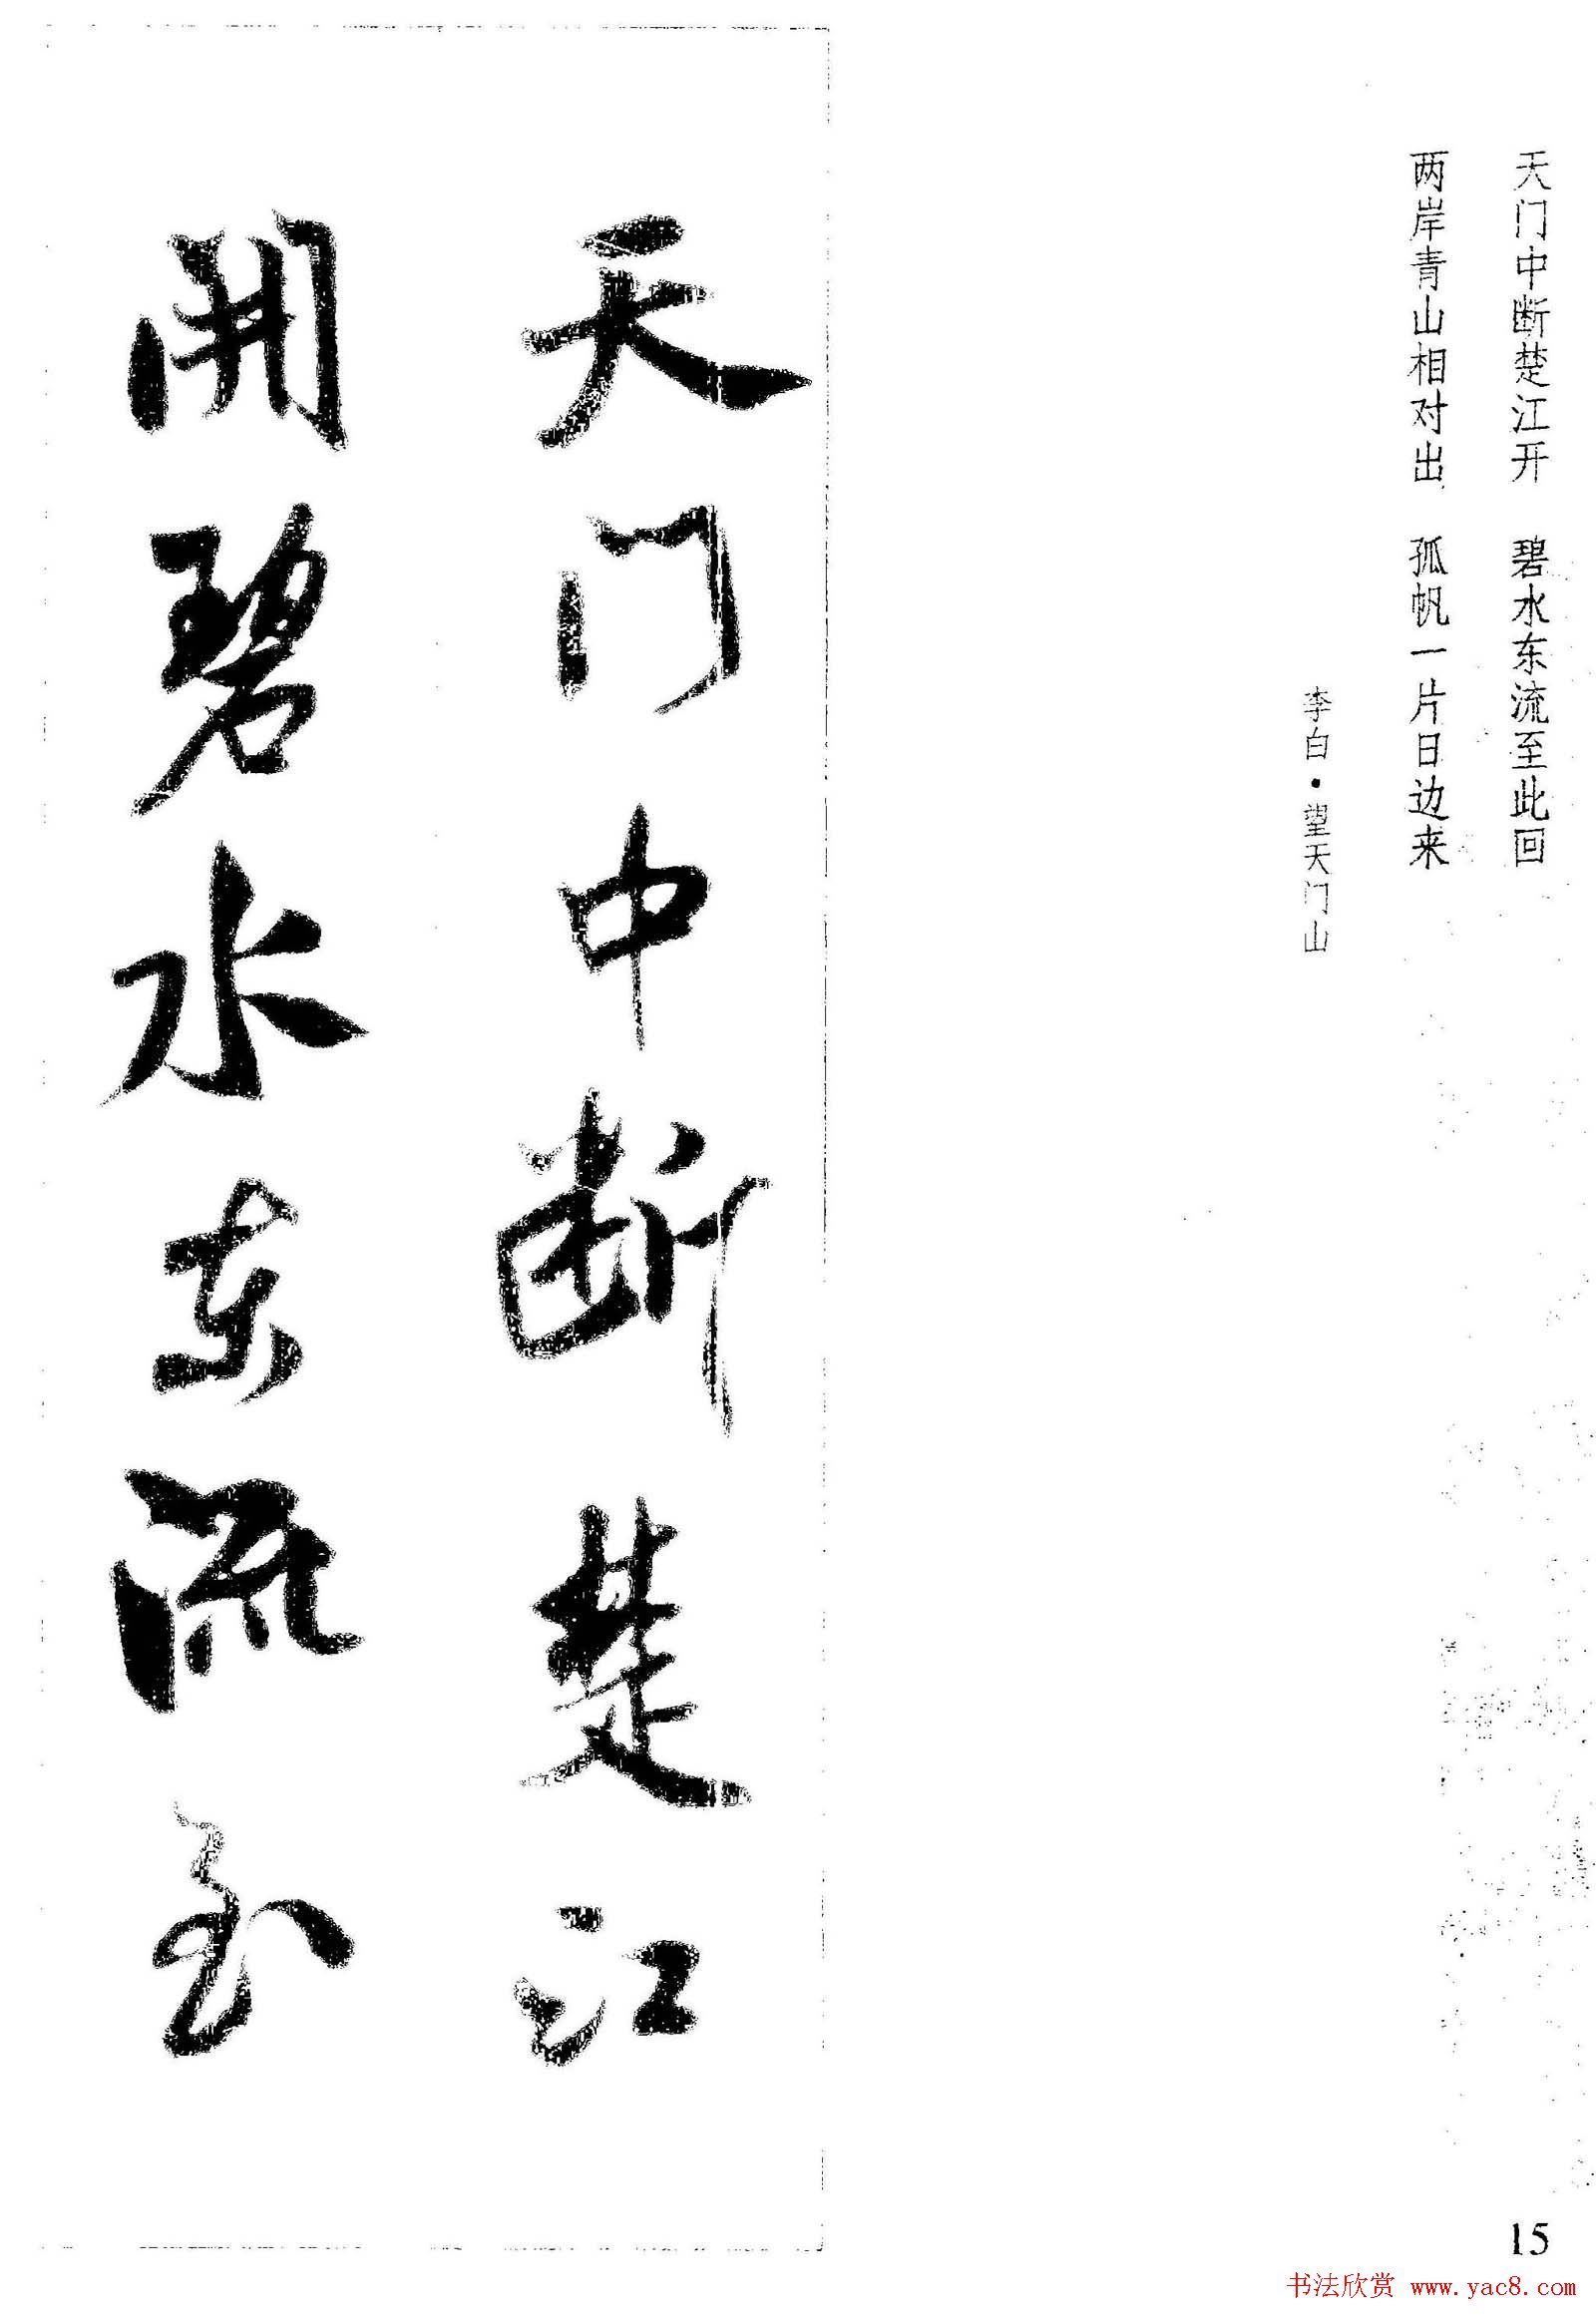 天门中断楚江开　碧水东流至此回
两岸青山相对出　孤帆一片日边来
李白·望天门山
天门中断楚江
開碧水东流至
15
书法欣赏 www.yac8.com